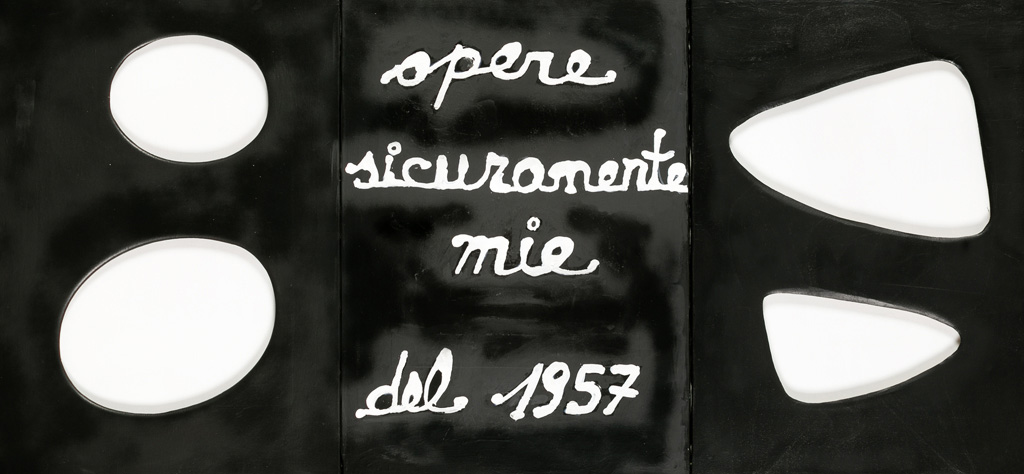 opere
sicuramente
mie
del 1957